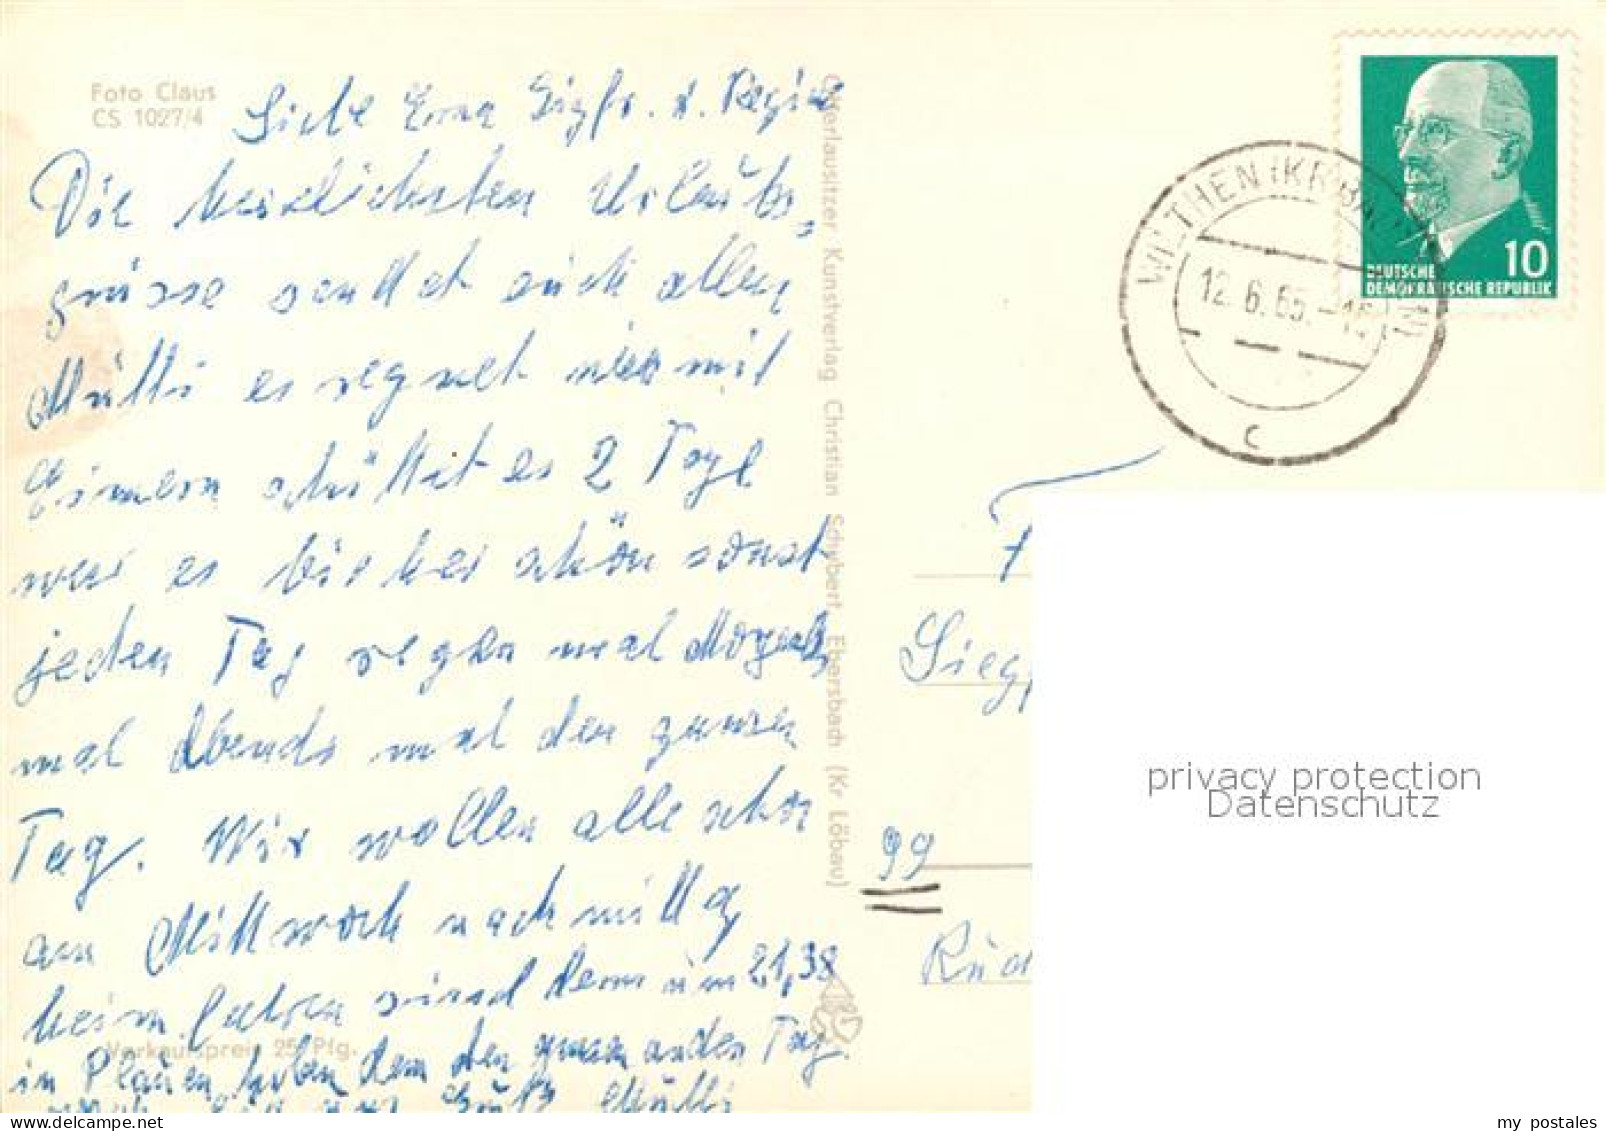 Foto Claus
CS 1027/4
Liebe Erna Sigfr. u. Regine
Die herzlichsten Urlaubs-
grüsse sendet euch allen
Mutti es regnet wie mit
Eimern schüttet es 2 Tage
war es bisher schön sonst
jeden Tag regen mal Morgends
mal Abends mal den ganzen
Tag. Wir wollen alle schon
am Mittwoch nachmittag
heim fahren sind dann um 21,38
in Plauen haben dem den ganzen andern Tag
Mutti
Verkaufspreis 25 Pfg.
Oberlausitzer Kunstverlag Christian Schubert, Ebersbach (Kr Löbau)
WILTHEN (KR BAUTZEN)
12.6.65.-16
c
10
DEUTSCHE
DEMOKRATISCHE REPUBLIK
F
Siegf
99
Rud
privacy protection
Datenschutz
my postales